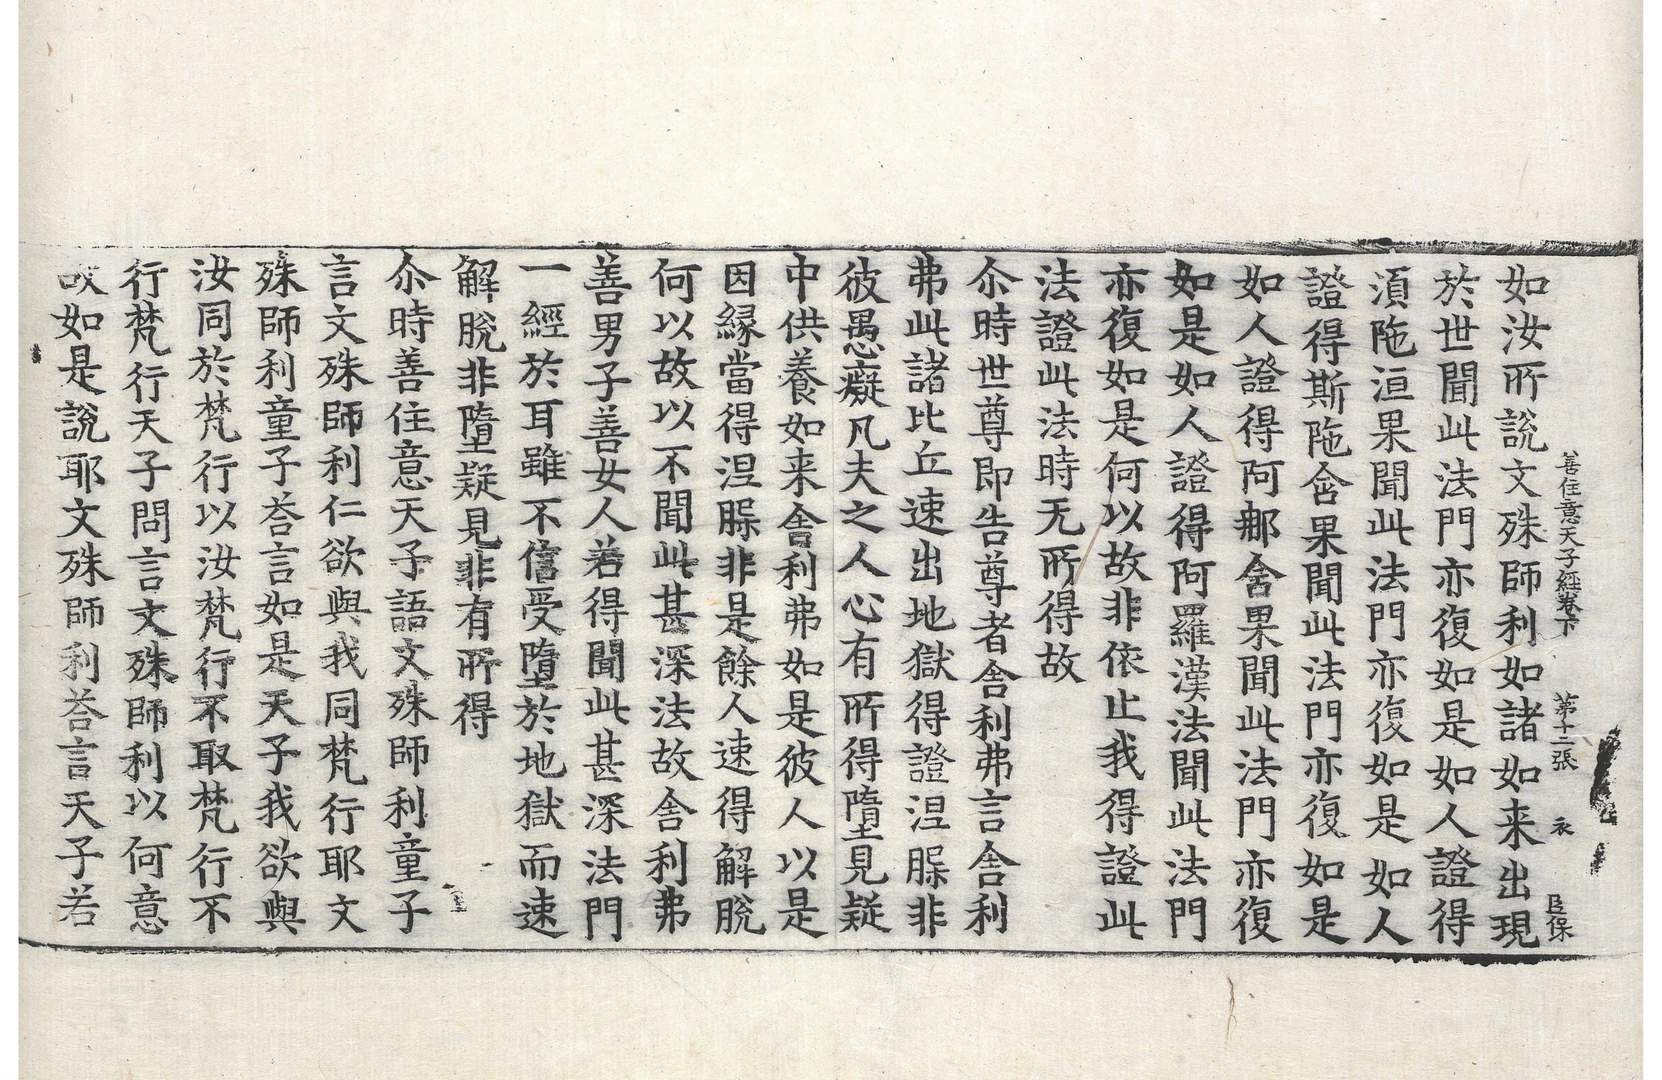 善住意天子經卷下　第十二張　衣　臣保
如汝所說文殊師利如諸如来出現
於世聞此法門亦復如是如人證得
湏陁洹果聞此法門亦復如是如人
證得斯陁含果聞此法門亦復如是
如人證得阿那舍果聞此法門亦復
如是如人證得阿羅漢法聞此法門
亦復如是何以故非依止我得證此
法證此法時无所得故
尒時世尊即告尊者舍利弗言舍利
弗此諸比丘速出地獄得證涅槃非
彼愚癡凡夫之人心有所得墮見疑
中供養如来舍利弗如是彼人以是
因縁當得涅槃非是餘人速得解脫
何以故以不聞此甚深法故舍利弗
善男子善女人若得聞此甚深法門
一經於耳雖不信受墮於地獄而速
解脫非墮疑見非有所得
尒時善住意天子語文殊師利童子
言文殊師利仁欲與我同梵行耶文
殊師利童子荅言如是天子我欲與
汝同於梵行以汝梵行不取梵行不
行梵行天子問言文殊師利以何意
故如是說耶文殊師利荅言天子若